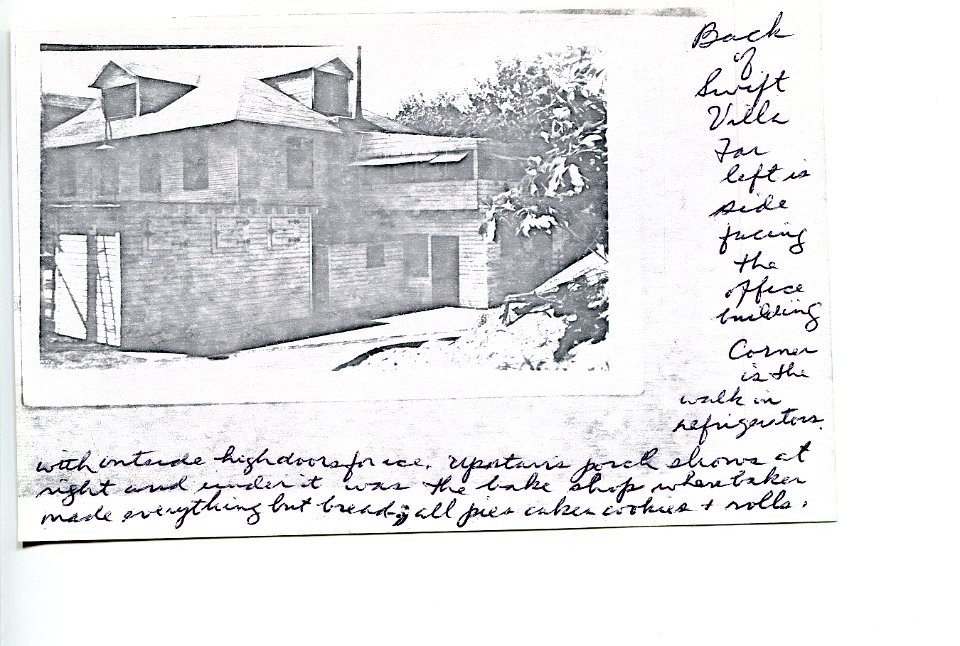 Back
of
Swift
Villa
Far
left is
side
facing
the
office
building
Corner
is the
walk in
refrigerators
with outside high doors for ice. Upstairs porch shows at
right and under it was the bake shop where baker
made everything but bread; all pies cakes cookies + rolls.